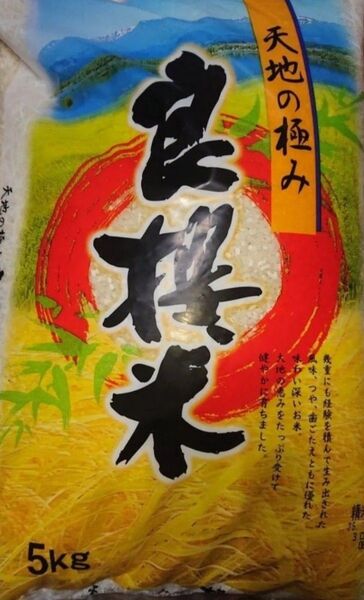 天地の極み
良撰米
幾重にも経験を積んで生み出された
風味、つや、歯ごたえともに優れた
味わい深いお米。
大地の恵みをたっぷり受けて
健やかに育ちました。
天地の極
5kg